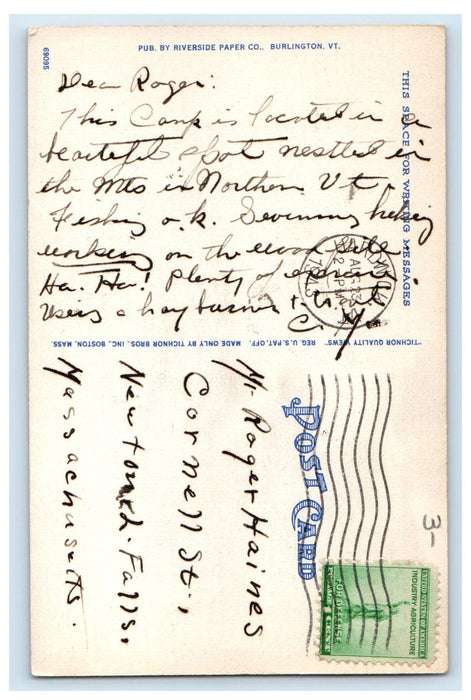 PUB. BY RIVERSIDE PAPER CO., BURLINGTON, VT.
69095
Dear Roger:
This Camp is located in a
beautiful spot nestled in
the mts in Northern Vt.
Fishing o.k. Swimming, hiking
working on the wood pile
Ha. Ha! Plenty of exercise
Using a hayburner
THIS SPACE FOR WRITING MESSAGES
"TICHNOR QUALITY VIEWS" REG. U. S. PAT. OFF. MADE ONLY BY TICHNOR BROS., INC., BOSTON, MASS.
POST CARD
Mr Roger Haines
Cornell St.,
Newton L. Falls,
Massachusetts.
AUG 23
2 PM
UNITED STATES OF AMERICA
INDUSTRY AGRICULTURE
FOR DEFENSE
1 CENT
3-